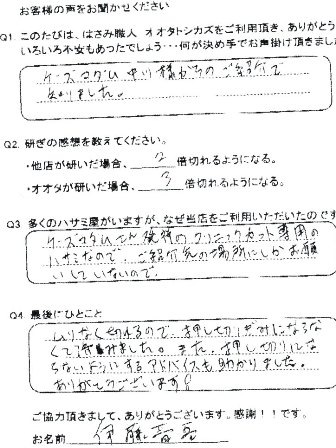 お客様の声をお聞かせください
Q1. このたびは、はさみ職人 オオタトシカズをご利用頂き、ありがとう
いろいろ不安もあったでしょう・・・何が決め手でお声掛け頂きまし
様からのご紹介で
知りました。
Q2. 研ぎの感想を教えてください。
・他店が研いだ場合、 2 倍切れるようになる。
・オオタが研いだ場合、 3 倍切れるようになる。
Q3 多くのハサミ屋がいますが、なぜ当店をご利用いただいたのです
クリニックカット専用の
ハサミなので、ご紹介先の場所にしかお願
いしていないので。
Q4. 最後にひとこと
なく切れるので、押し切りぎみにならな
くて済みました。また、押し切りにな
らない する アドバイスも助かりました。
ありがとうございます!
ご協力頂きまして、ありがとうございます。感謝!!です。
お名前 伊藤